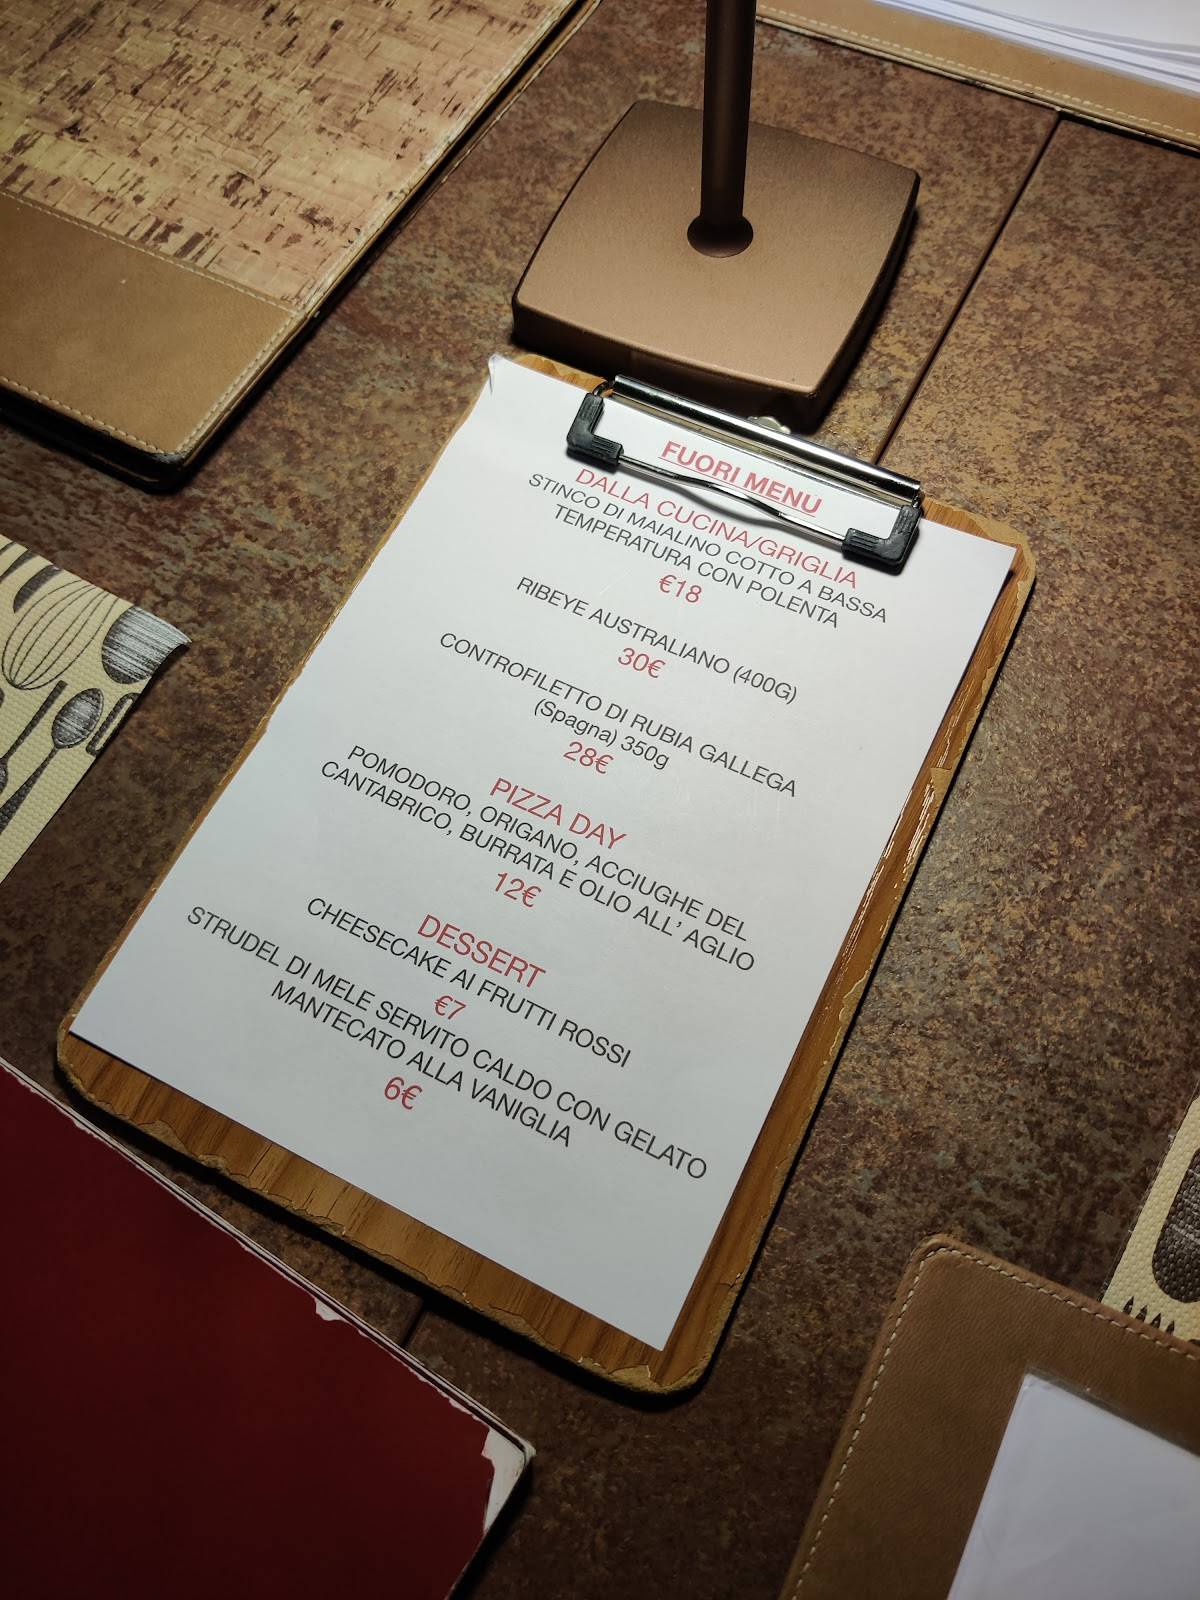 FUORI MENÙ
DALLA CUCINA/GRIGLIA
STINCO DI MAIALINO COTTO A BASSA
TEMPERATURA CON POLENTA
€18
RIBEYE AUSTRALIANO (400G)
30€
CONTROFILETTO DI RUBIA GALLEGA
(Spagna) 350g
28€
PIZZA DAY
POMODORO, ORIGANO, ACCIUGHE DEL
CANTABRICO, BURRATA E OLIO ALL’ AGLIO
12€
DESSERT
CHEESECAKE AI FRUTTI ROSSI
€7
STRUDEL DI MELE SERVITO CALDO CON GELATO
MANTECATO ALLA VANIGLIA
6€